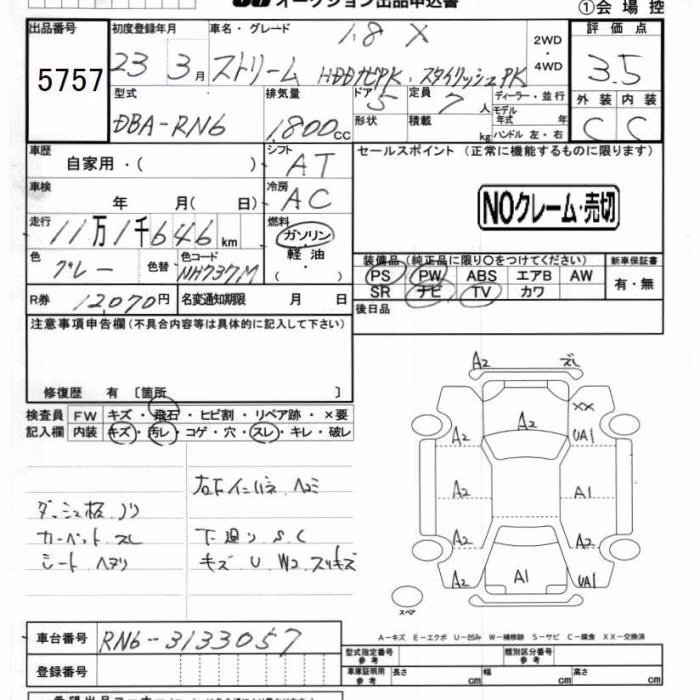 オークション出品申込書
①会場控
出品番号
5757
初度登録年月
23 3月
車名・グレード
1.8 X
ストリーム HDDナビPK. スタイリッシュPK
2WD
・
4WD
評価点
3.5
外装 内装
C C
型式
DBA-RN6
排気量
1,800cc
ドア 5
形状
定員 7人
積載 kg
ディーラー・並行
モデル
年式 年
ハンドル 左・右
車歴
自家用・( )
シフト
AT
車検
年 月( 日)
冷房
AC
走行
11万1千646km
燃料
ガソリン
・
軽油
( )
色
グレー
色替
色コード
NH737M
R券 12,070円
名変通知期限 月 日
セールスポイント (正常に機能するものに限ります)
NOクレーム・売切
装備品(純正品に限り○をつけてください)
PS PW ABS エアB AW
SR ナビ TV カワ
新車保証書
有・無
後日品
注意事項申告欄(不具合内容等は具体的に記入して下さい)
修復歴 有 〔箇所 〕
検査員
記入欄
FW キズ・飛石・ヒビ割・リペア跡・×要
内装 キズ・汚レ・コゲ・穴・スレ・キレ・破レ
ダッシュ板 ノリ
カーペット スレ
シート ヘタリ
下廻り S.C
キズ U W2 スリキズ
A2 ズレ
XX
A2 A2 UA1
A2 A1
A2 A2
A2 A1 UA1
スペア
A-キズ E-エクボ U-凹み W-補修跡 S-サビ C-腐食 XX-交換済
車台番号 RN6-3133057
登録番号
型式指定番号
参考
類別区分番号
参考
車庫証明用
参考
長さ cm 幅 cm 高さ cm